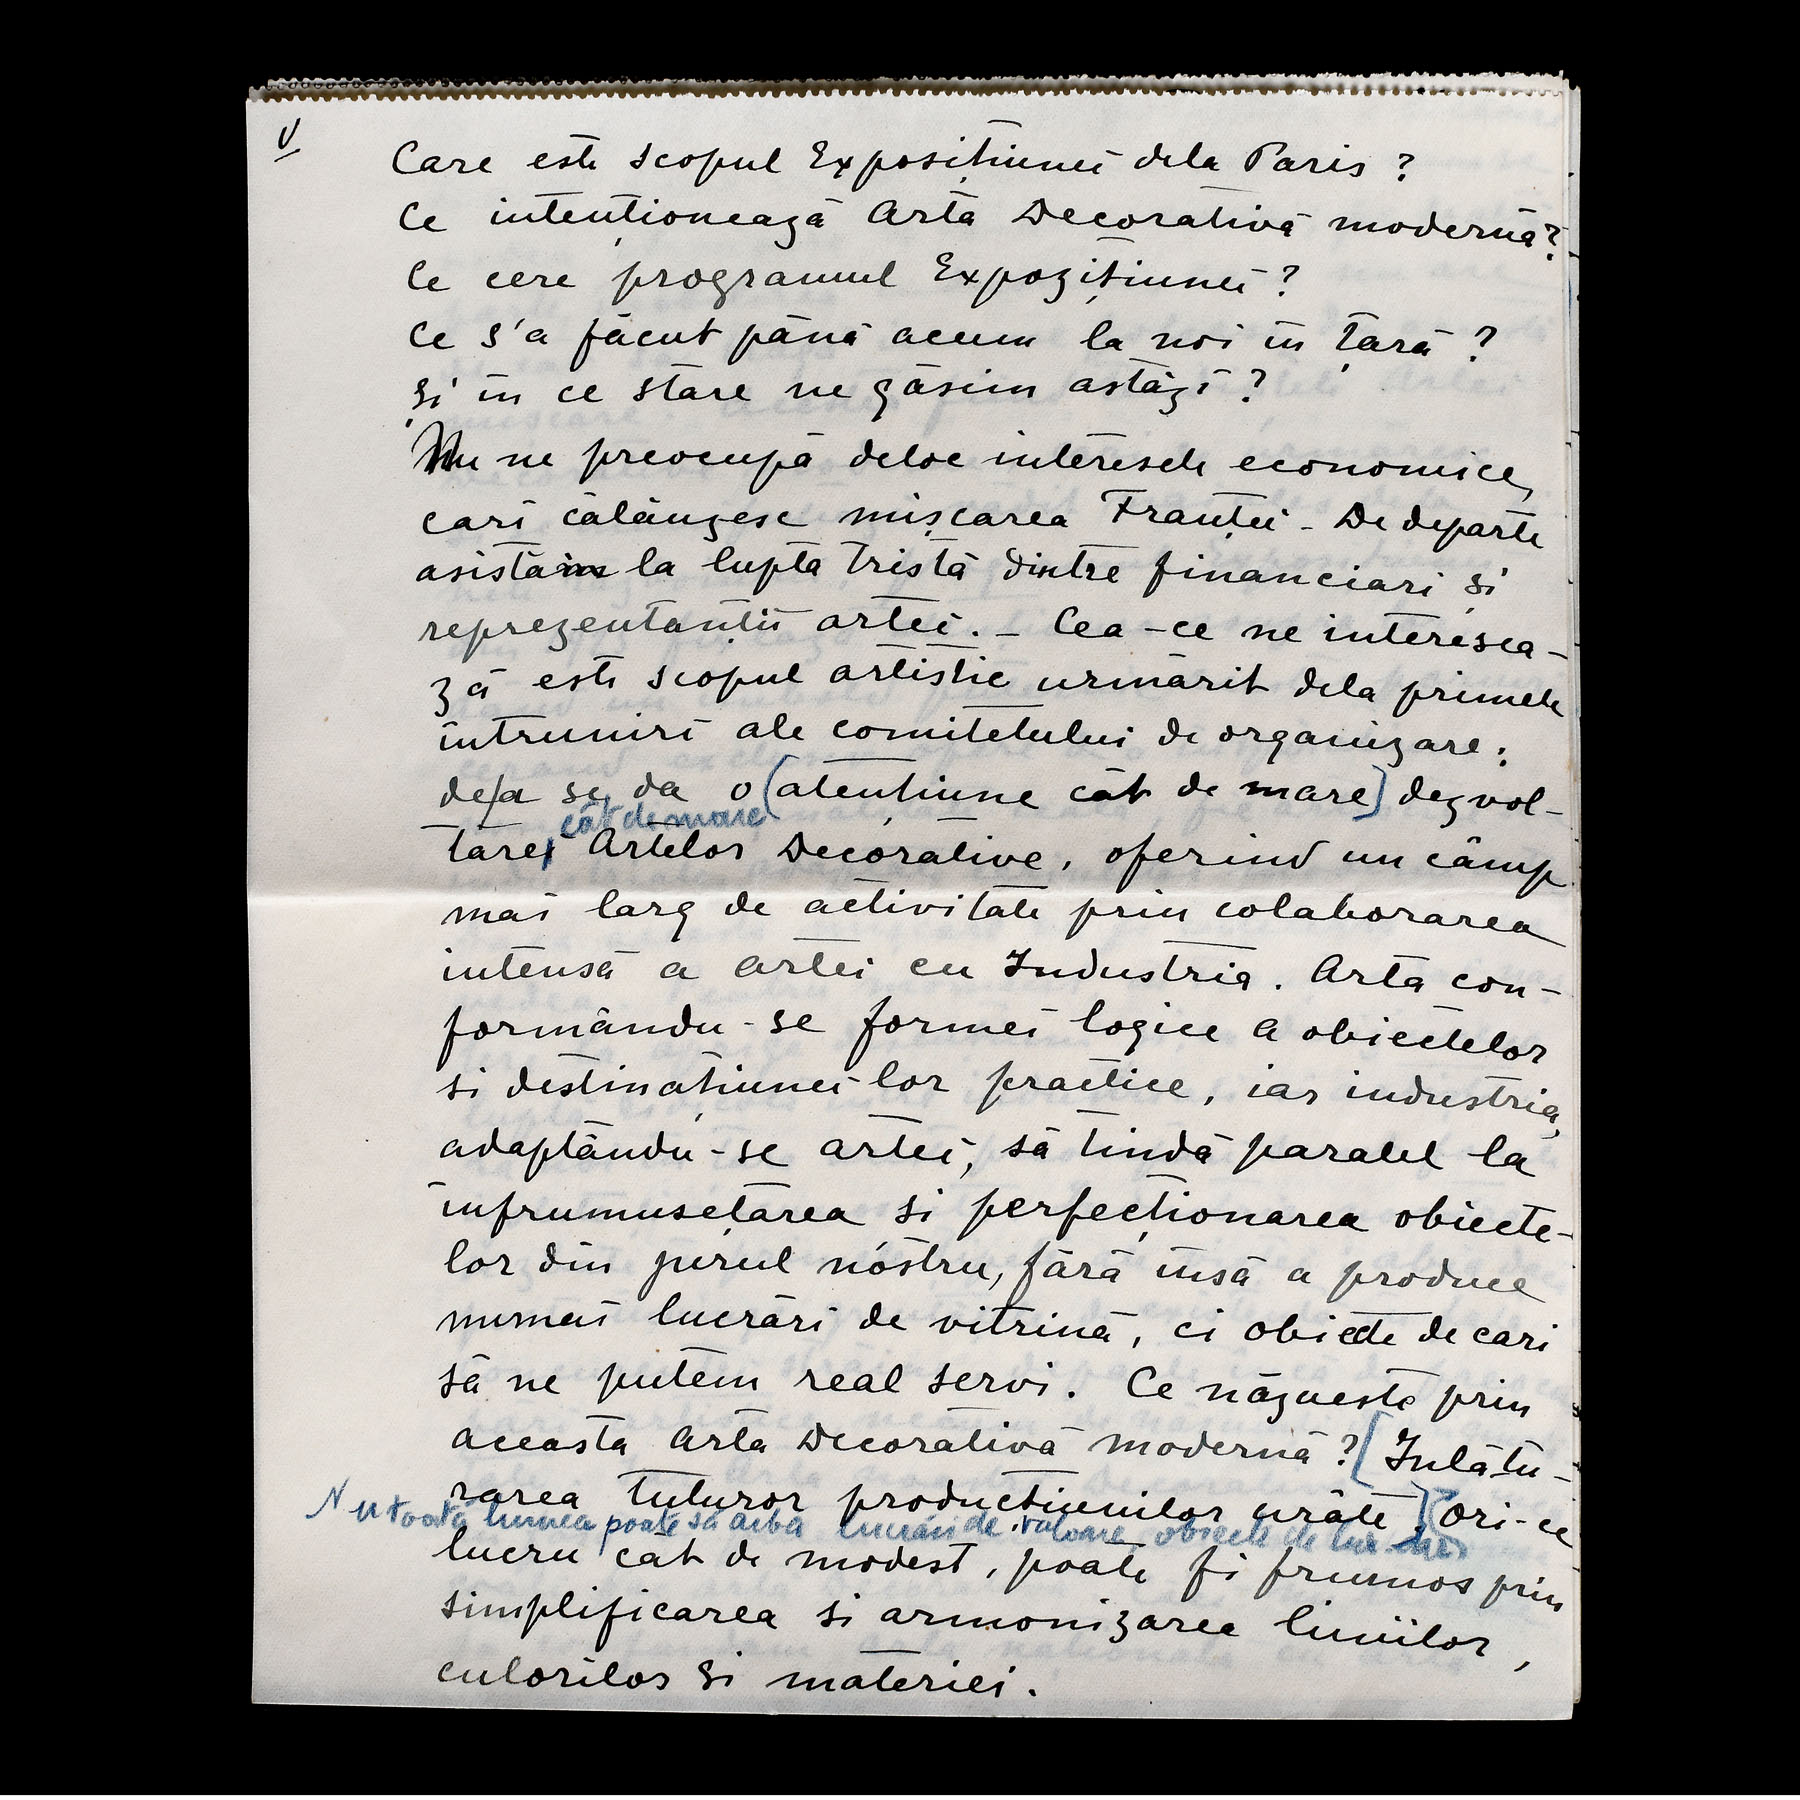 V
Care este scopul Exposițiunei dela Paris ?
Ce intenționează Arta Decorativă modernă?
Ce cere programul Expozițiunei ?
Ce s'a făcut până acum la noi in țară ?
și in ce stare ne găsim astăzi ?
Nu ne preocupă deloc interesele economice,
cari călăuzesc mișcarea Franței - De departe
asistăm la lupta tristă dintre financiari și
reprezentanții artei. - Cea-ce ne interesea-
ză este scopul artistic urmărit dela primele
intruniri ale comitetului de organizare:
de a se da o (atențiune cât de mare) dezvol-
cât de mare
tarei Artelor Decorative, oferind un câmp
mai larg de activitate prin colaborarea
intensă a artei cu Industria. Arta con-
formându-se formei logice a obiectelor
si destinațiunei lor practice, iar industria,
adaptându-se artei, să tindă paralel la
infrumusetarea si perfecționarea obiecte-
lor din jurul nostru, fără insă a produce
numai lucrări de vitrină, ci obiecte de cari
să ne putem real servi. Ce năzueste prin
aceasta Arta Decorativă modernă? [Inlătu-
rarea tuturor producțiunilor urâte] Ori-ce
Nu toată lumea poate să aibă lucrări de valoare, obiecte de lux
lucru cât de modest, poate fi frumos prin
simplificarea si armonizarea liniilor,
culorilor si materiei.